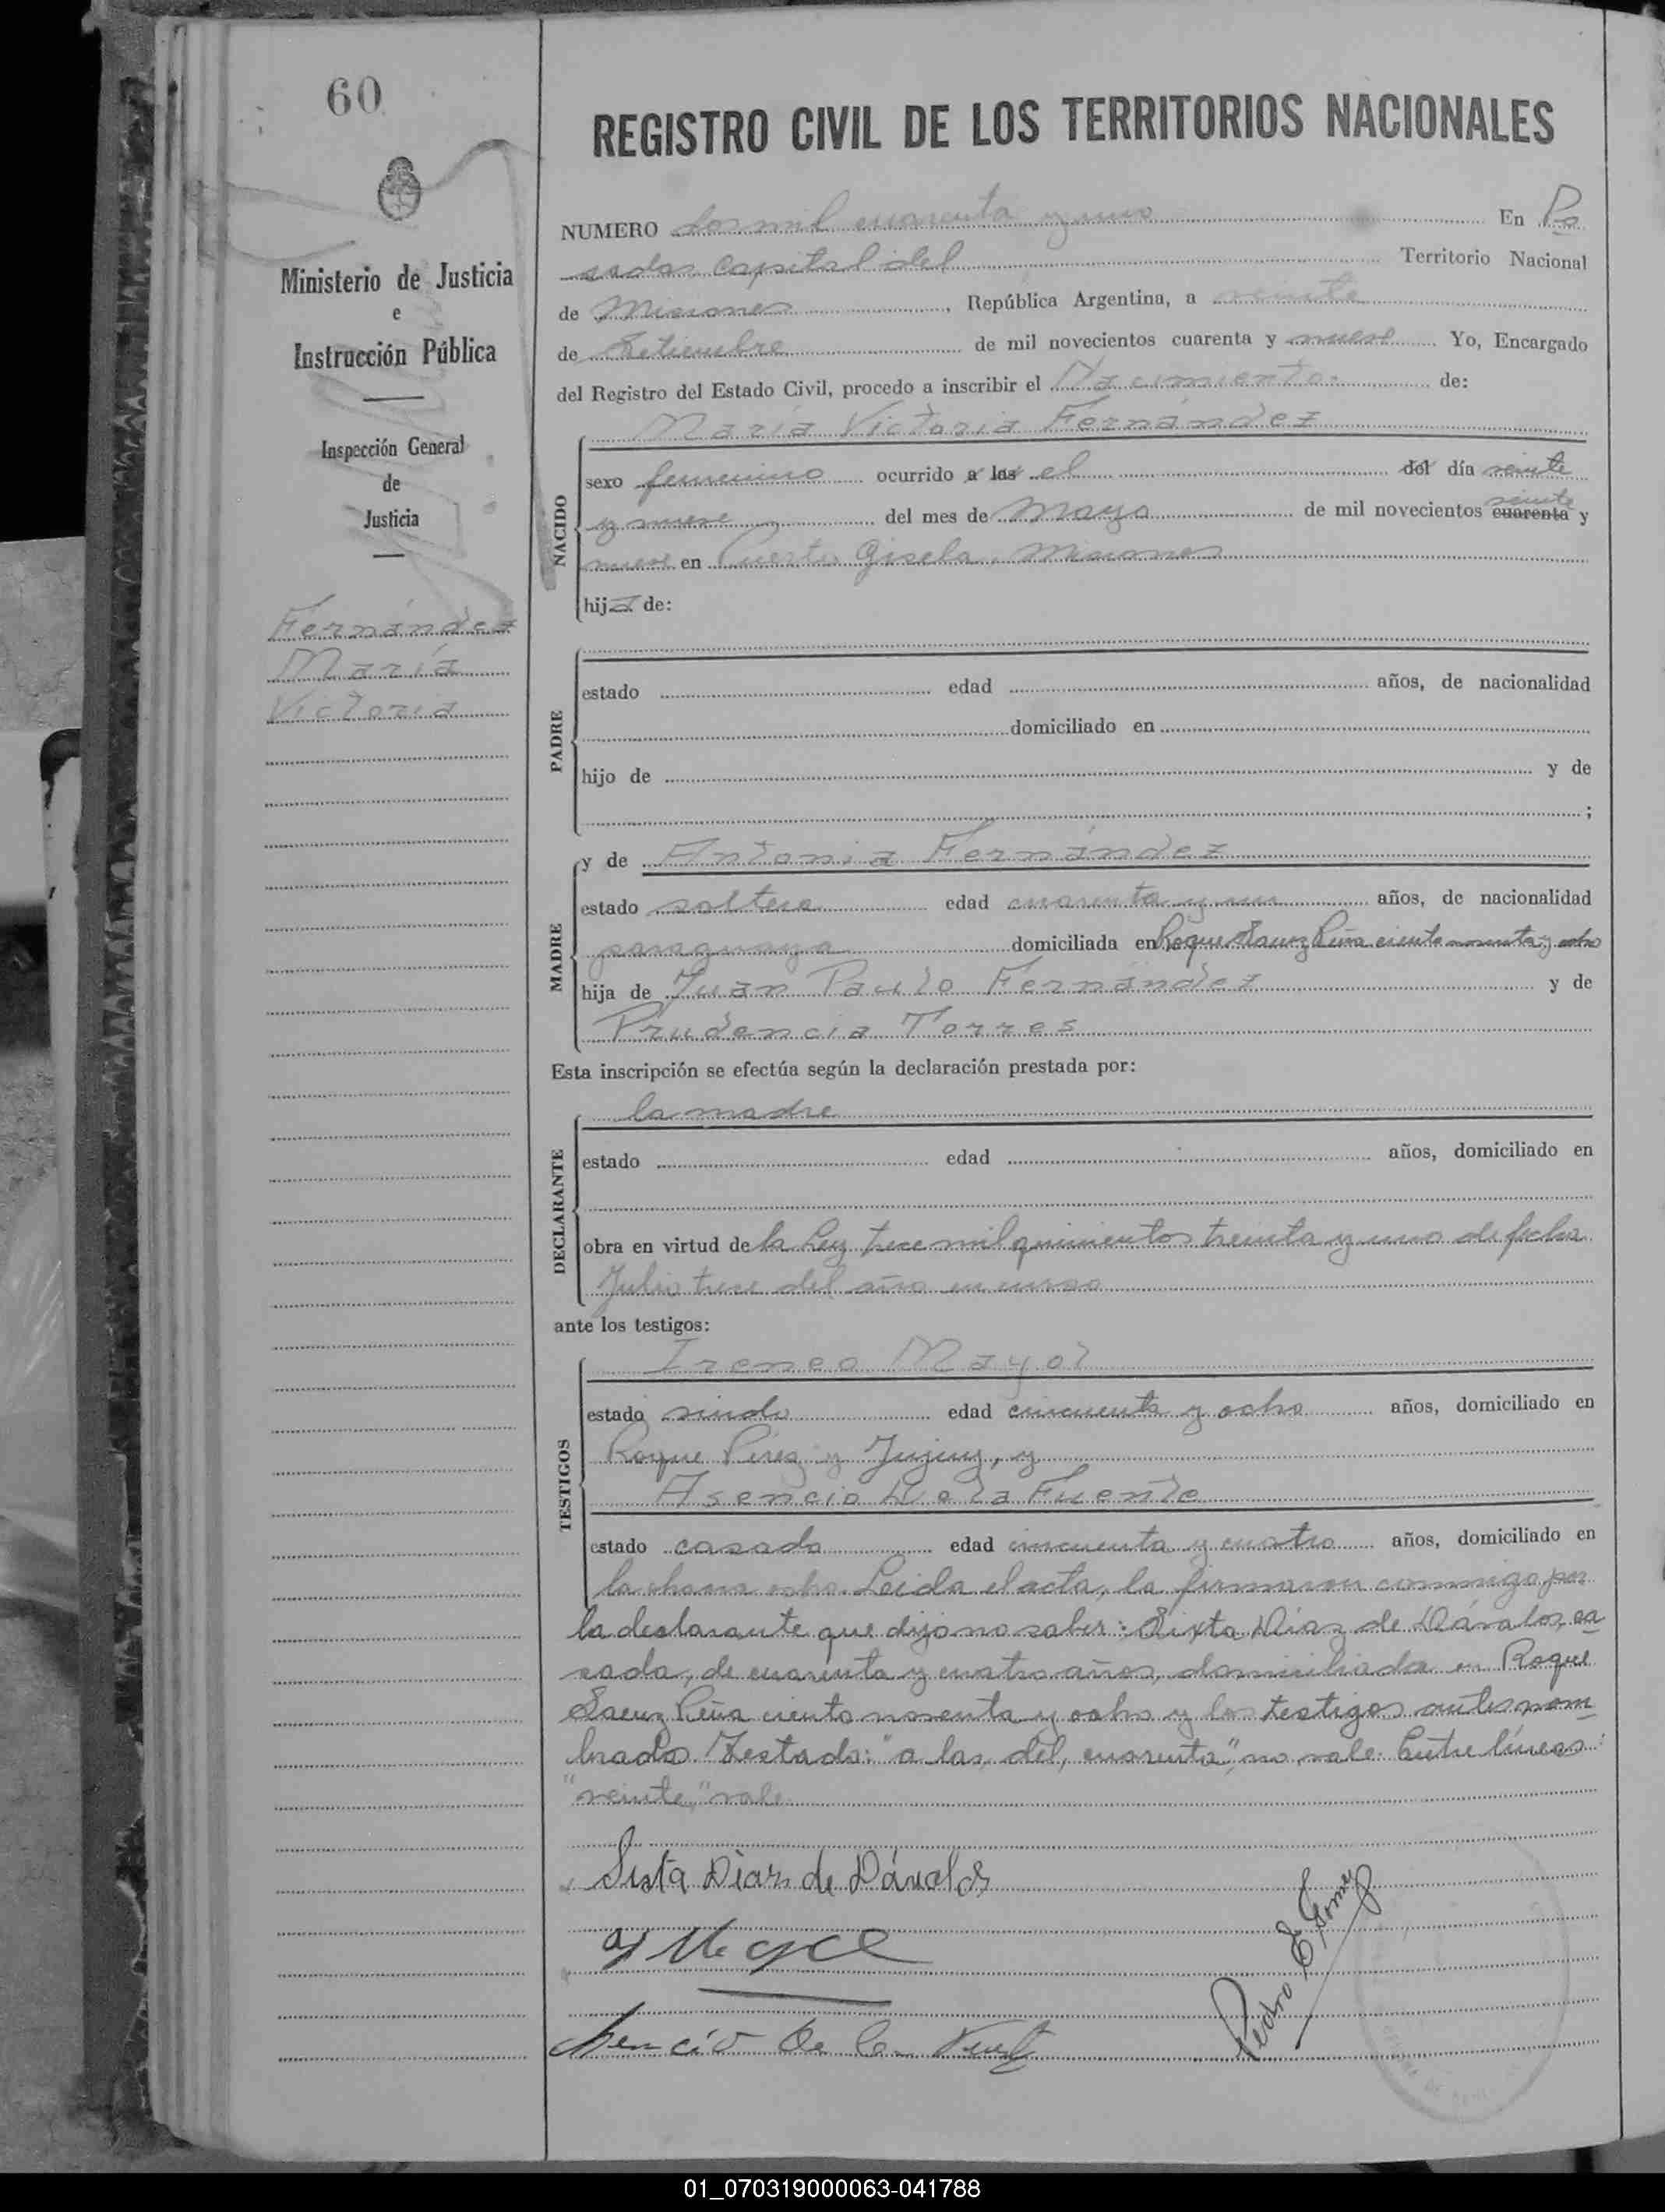 60
REGISTRO CIVIL DE LOS TERRITORIOS NACIONALES
Ministerio de Justicia
e
Instrucción Pública
Inspección General
de
Justicia
Fernández
María
Victoria
NUMERO dos mil cuarenta y uno En Po
sadas capital del Territorio Nacional
de Misiones, República Argentina, a veinte
de Setiembre de mil novecientos cuarenta y nueve Yo, Encargado
del Registro del Estado Civil, procedo a inscribir el Nacimiento de:
NACIDO
María Victoria Fernández
sexo femenino ocurrido a las el del día veinte
veinte
y nueve del mes de Mayo de mil novecientos cuarenta y
nueve en Puerto Gisela, Misiones
hija de:
PADRE
estado edad años, de nacionalidad
domiciliado en
hijo de y de
;
MADRE
y de Antonia Fernández
estado soltera edad cuarenta y un años, de nacionalidad
paraguaya domiciliada en Roque Saenz Peña ciento noventa y ocho
hija de Juan Paulo Fernández y de
Prudencia Torres
Esta inscripción se efectúa según la declaración prestada por:
DECLARANTE
la madre
estado edad años, domiciliado en
obra en virtud de la Ley trece mil quinientos treinta y uno de fecha
Julio trece del año en curso
ante los testigos:
TESTIGOS
Ireneo Mayol
estado viudo edad cincuenta y ocho años, domiciliado en
Roque Pérez y Jujuy, y
Asencio De la Fuente
estado casado edad cincuenta y cuatro años, domiciliado en
la ocho. Leida el acta, la firmaron conmigo por
la declarante que dijo no saber: Sixta Díaz de Dávalos, ca
sada, de cuarenta y cuatro años, domiciliada en Roque
Saenz Peña ciento noventa y ocho y los testigos antes nom
brados. Testado: "a las, del, cuarenta", no vale. Entre líneas:
"veinte," vale.
Sixta Diaz de Dávalos
Asencio De la Fuent
Pedro E. Gomez
01_070319000063-041788